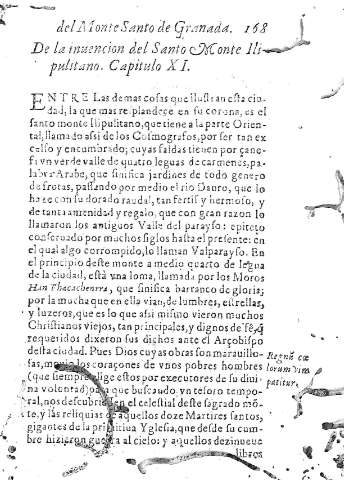 del Monte Santo de Granada. 168
De la inuencion del Santo Monte Ili
pulitano. Capitulo XI.
ENTRE Las demas cosas que ilustran esta ciu
dad, la que mas resplandece en su corona, es el
santo monte Ilipulitano, que tiene a la parte Orien
tal, llamado assi de los Cosmografos, por ser tan ex
celso y encumbrado; cuyas faldas tienen por çane-
fa vn verde valle de quatro leguas de carmenes, pa-
labra Arabe, que sinifica jardines de todo genero
de frutas, passando por medio el rio Dauro, que lo
haze con su dorado raudal, tan fertil y hermoso, y
de tanta amenidad y regalo, que con gran razon lo
llamaron los antiguos Valle del parayso: epiteto
conseruado por muchos siglos hasta el presente: en
el qual algo corrompido, lo llaman Valparayso. En
el principio deste monte a medio quarto de legua
de la ciudad, está vna loma, llamada por los Moros
Han Thacachenra, que sinifica barranco de gloria;
por la mucha que en ella vian, de lumbres, estrellas,
y luzeros, que es lo que assi mismo vieron muchos
Christianos viejos, tan principales, y dignos de fè, q̃
requeridos dixeron sus dichos ante el Arçobispo
desta ciudad. Pues Dios cuyas obras son marauillo-
sas, mouio los coraçones de vnos pobres hombres
(que siempre elige estos por executores de su diui
na voluntad) para que buscando vn tesoro tempo-
ral, nos descubriessen el celestial deste sagrado mõ
te, y las reliquias de aquellos doze Martires santos,
gigantes de la primitiua Yglesia, que desde su cum
bre hizieron guerra al cielo: y aquellos dezinueue
libros
Regnũ cœ
lorum vim
patitur.